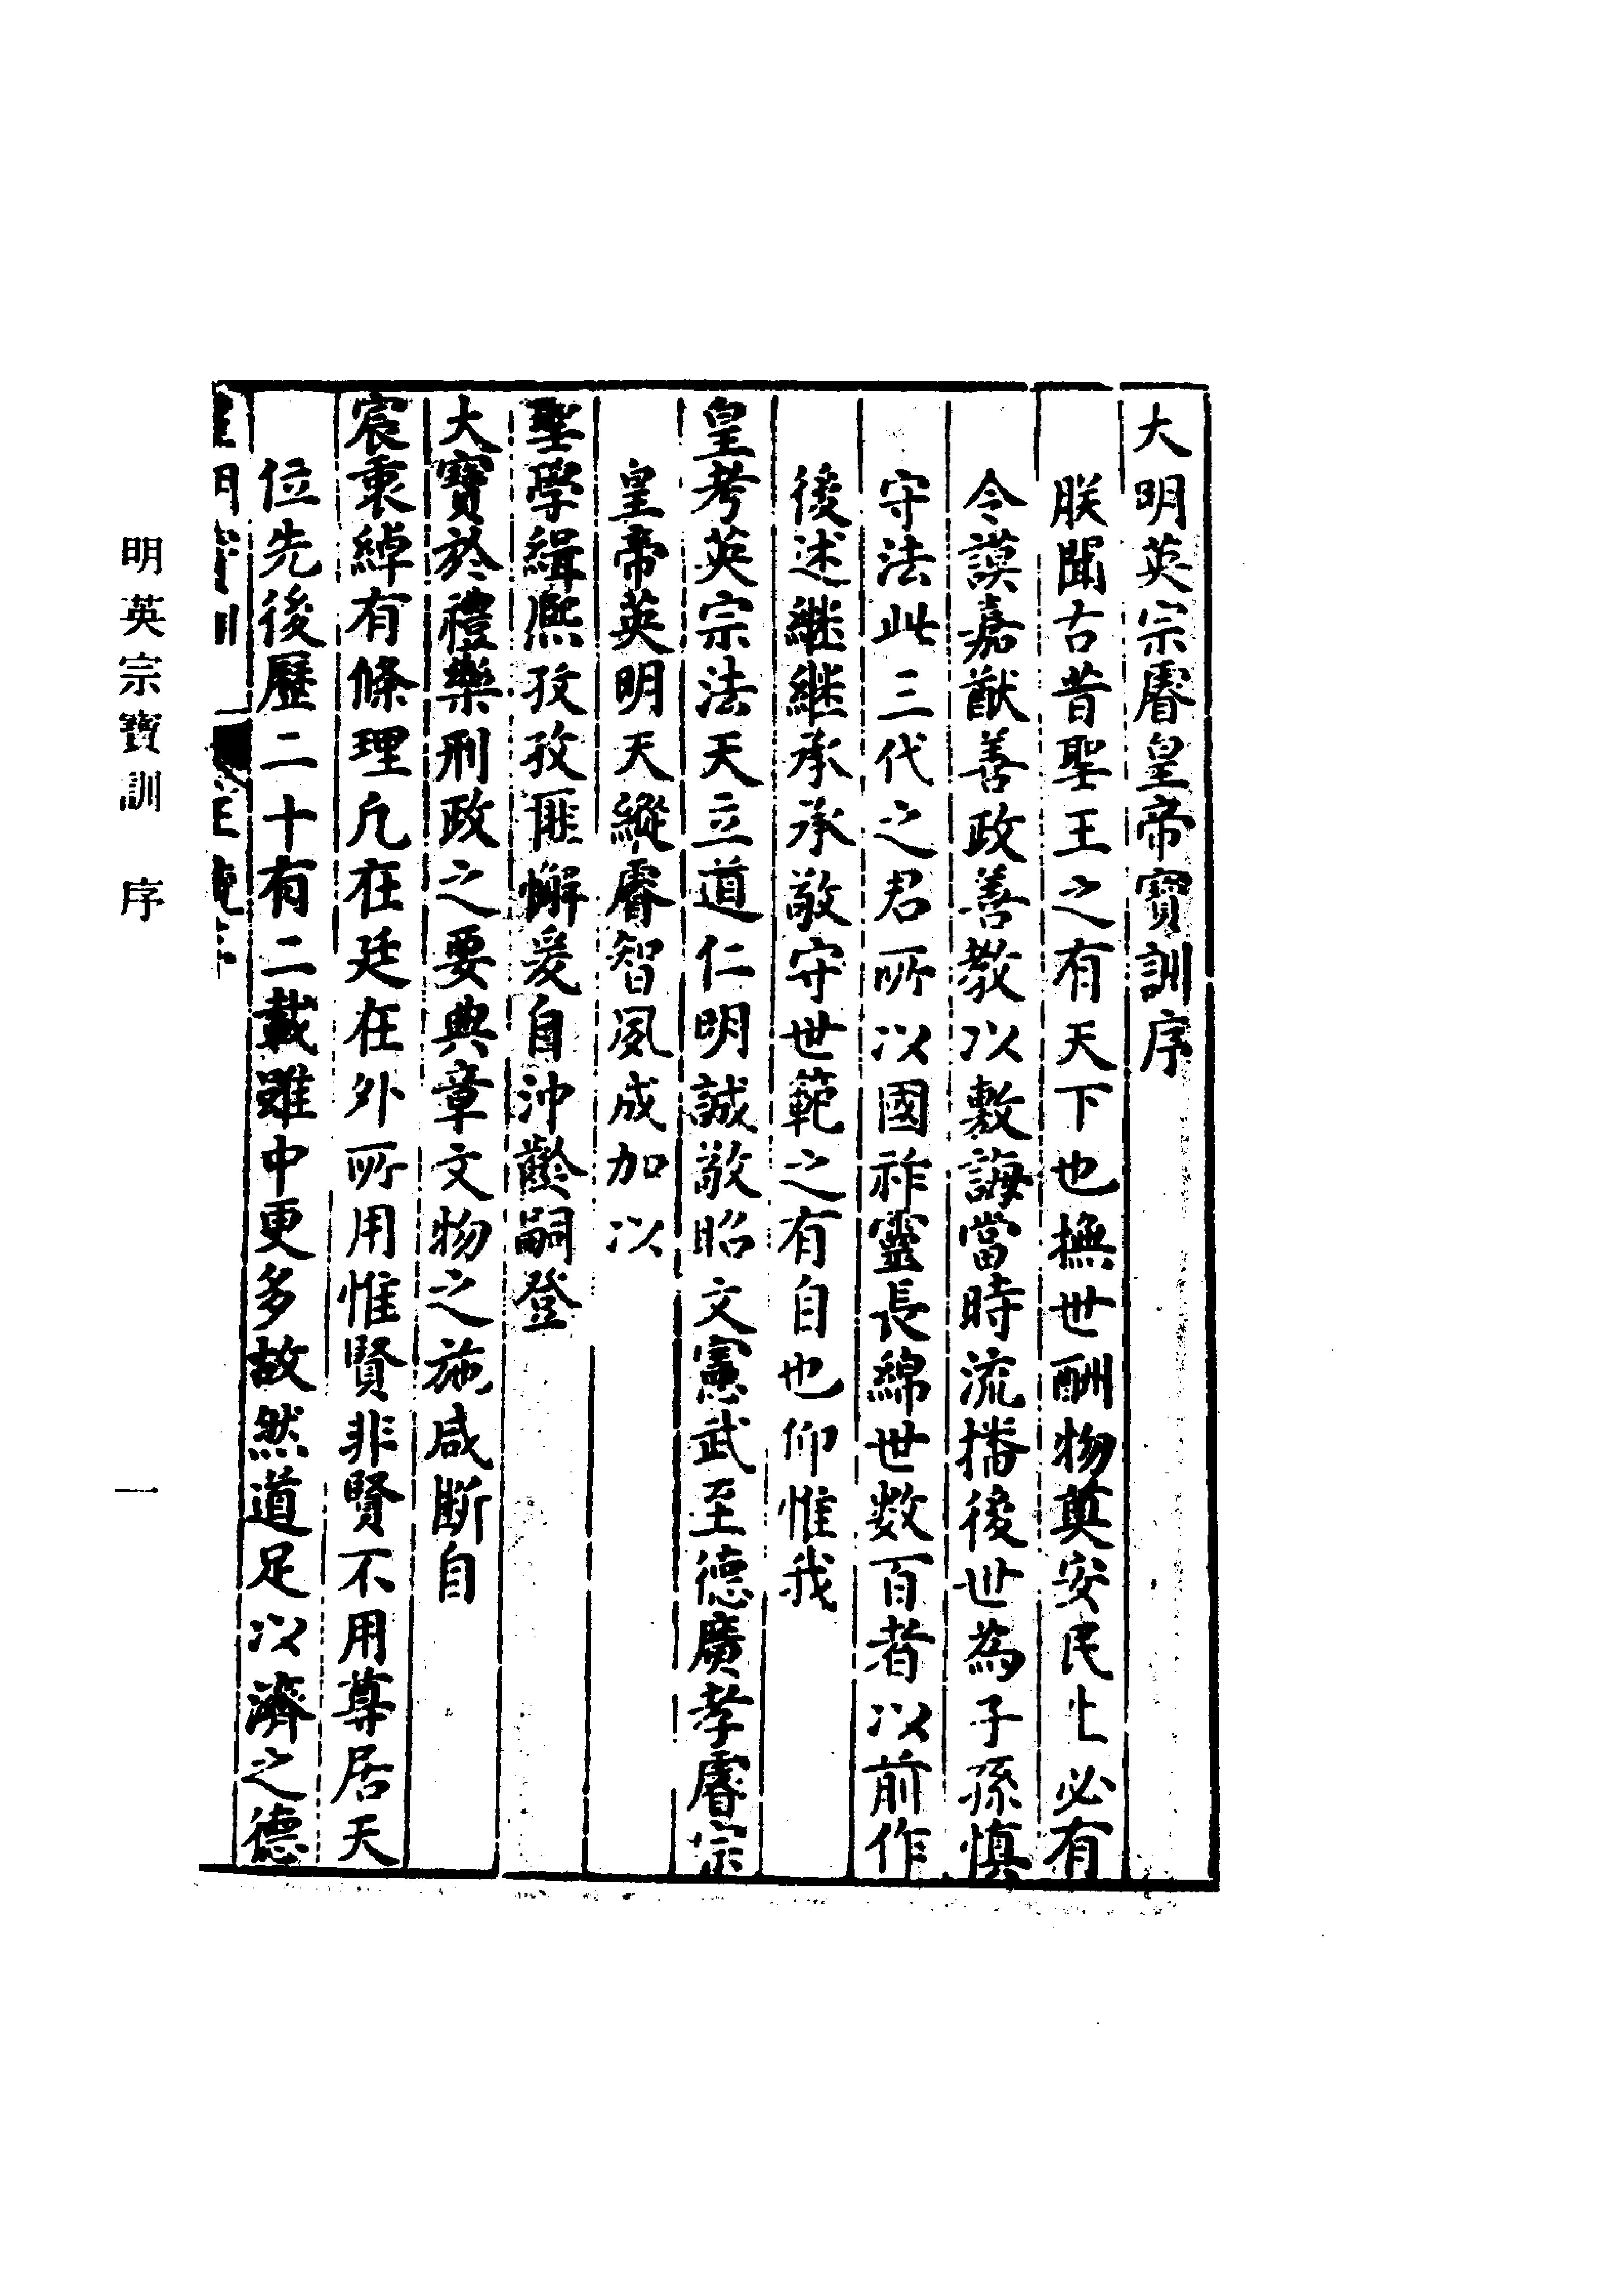 大明英宗睿皇帝寶訓序
朕聞古昔聖王之有天下也撫世酬物奠安民生必有
令謨嘉猷善政善教以敷誨當時流播後世為子孫慎
守法此三代之君所以國祚靈長綿世數百者以前作
後述繼繼承承敬守世範之有自也仰惟我
皇考英宗法天立道仁明誠敬昭文憲武至德廣孝睿宗
皇帝英明天縱睿智夙成加以
聖學緝熙孜孜匪懈爰自沖齡嗣登
大寶於禮樂刑政之要典章文物之施咸斷自
宸衷綽有條理凡在廷在外所用惟賢非賢不用尊居天
位先後歷二十有二載雖中更多故然道足以濟之德
明英宗寶訓 序
一